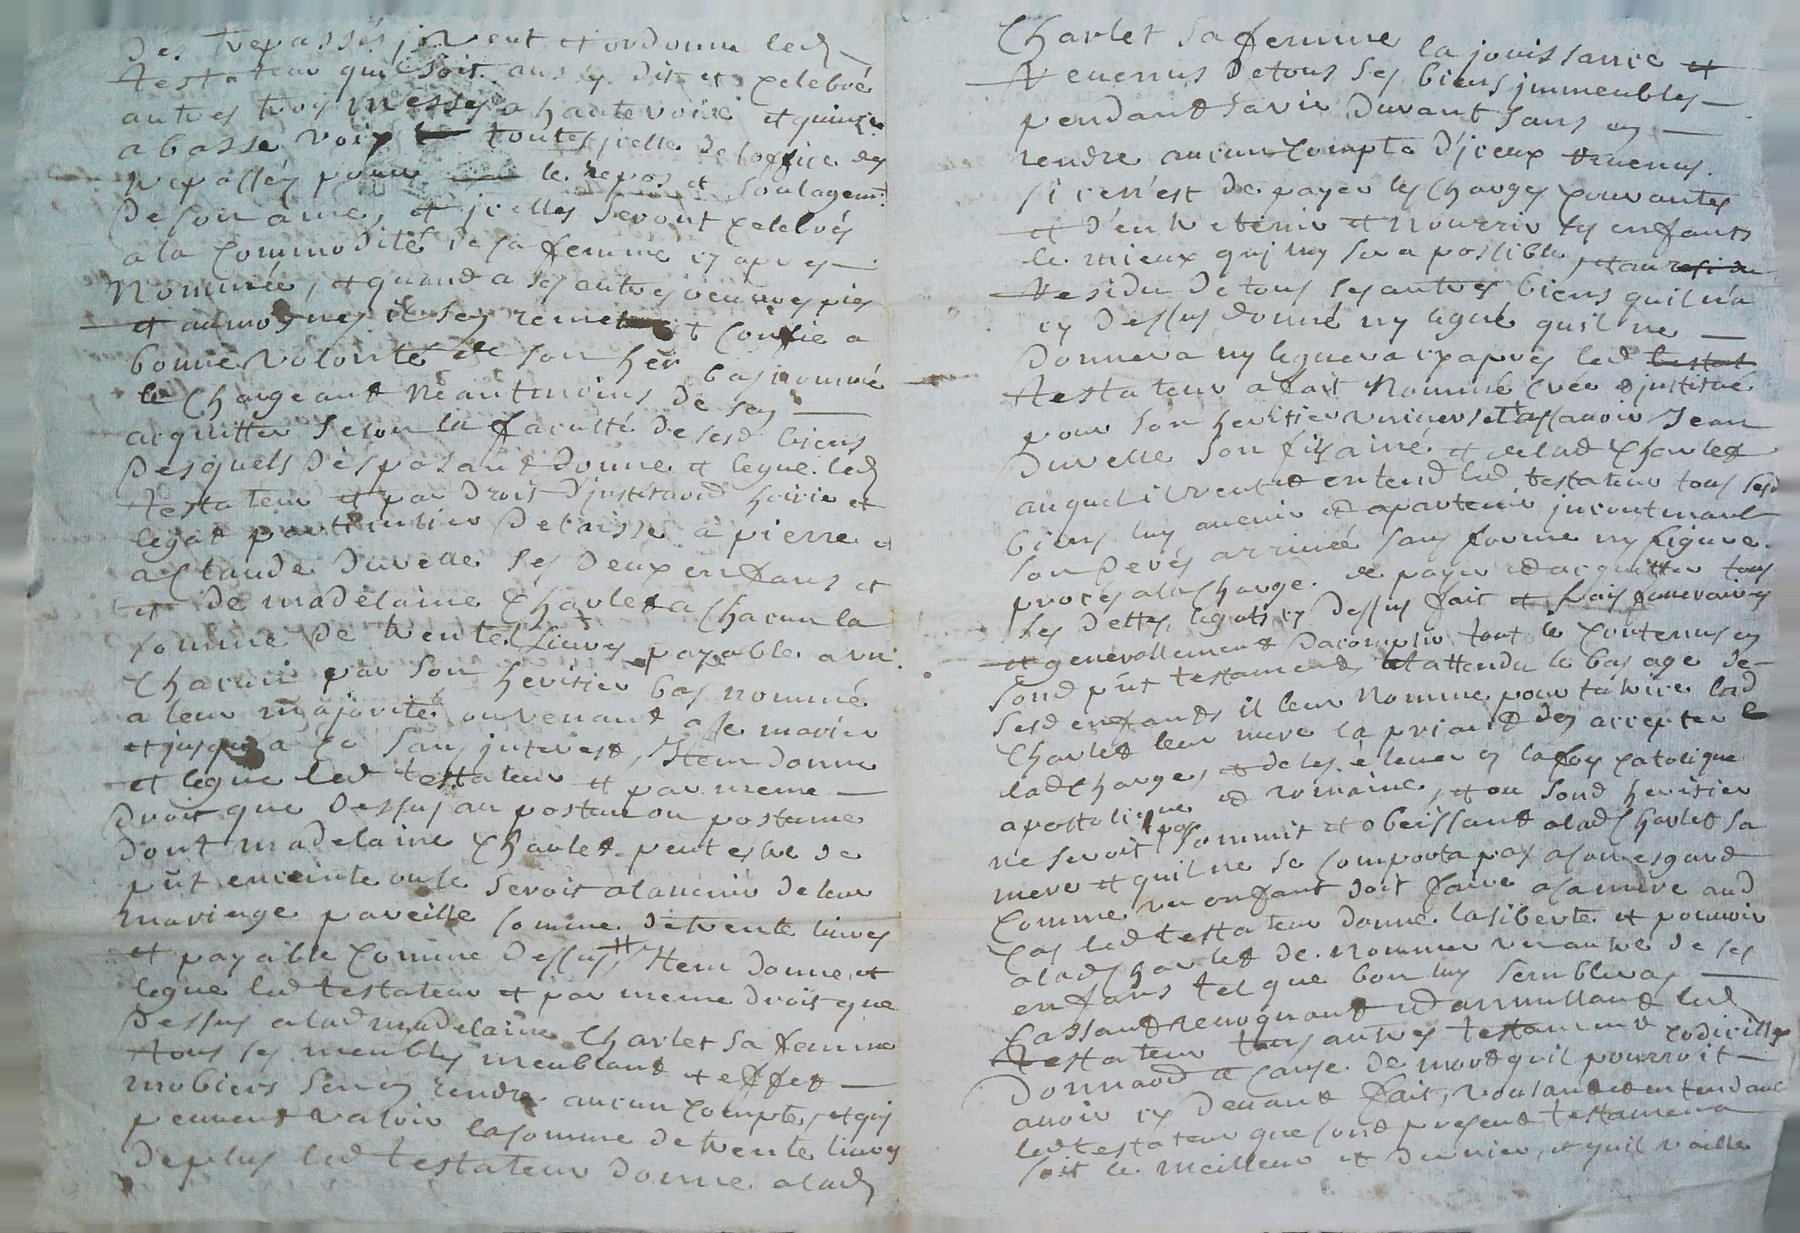 Des trepassés, veut et ordonne led
testateur qui soit aussy dit et celebré
autres trois messes a haute voix et quinze
a basse voix toutes jcelle de loffice des
trepassés pour le repos et soulagemt
de son ame, et jcelles seront celebrés
a la commodité de sa femme cy apres
Nommée, et quand a ses autres oeuvres pies
et aumosnes il sen remet et confie a
bonne volonté de son her bas nommé
le Chargeant Neantmoins de sen
acquitter selon la faculté de sesd biens
Desquels disposant donne et legue led
testateur et par droit djnstitution hoirie et
legat particulier delaisse a pierre et
a Claude Duvelle ses deux enfans et
et de madelaine Charlet a Chacun la
somme de trente Livres payable a un
Chacun par son heritier bas nommé
a leur majorité ou venant a se marier
et jusqua ce sans jnterest, Item donne
et legue led testateur et par meme
droit que dessus au postume ou postume
dont madelaine Charlet peut estre de
pñt enceinte ou le seroit alauenir de leur
mariage pareille somme de trente livres
et payable comme dessus, Item donne et
legue led testateur et par meme droit que
dessus a lad madelaine Charlet sa femme
tous ses meubles meublant et effet
mobiers sen en rendre aucun compte, et qui
peuvent valoir la somme de trente livres
de plus led testateur donne a lad
Charlet sa femme la jouissance et
Revenus de tous ses biens jmmeubles
pendant sa vie durant sans en
rendre aucun compte d'jceux revenus.
si ce n'est de payer les charges courantes
et d'entretenir et nourrir ses enfants
le mieux qui luy sera possible, et au residu
Residu de tous ses autres biens quil n'a
cy dessus donné ny legué quil ne
donnera ny leguera cy apres led testat
testateur a fait Nommé créé et jnstitué
pour son heritier universel assavoir Jean
Duvelle son fils ainé et de lad Charlet
auquel il veut et entend led testateur tous sesd
biens luy avenir et apartenir jncontinant
son decés arrivée sans forme ny figure
procés a la charge de payer et acquitter tous
ses dettes, legats cy dessus fait et frais funeraires
et generallement d'acomplir tout le contenus en
sond pñt testament, et attendu le bas age de
sesd enfants il leur nomme pour tutrice lad
Charlet leur mere la priant den accepter
lad Charge, et de les élever en la foy catolique
apostolique et romaine, et ou sond heritier
ne seroit pas soummit et obeissant a lad Charlet sa
mere et quil ne se comporta pas a son esgard
comme un enfant doit faire a sa mere aud
cas led testateur donne la liberté et pouvoir
a lad Charlet de nommer un autre de ses
enfans tel que bon luy semblera,
Cassant revoquant et annullant led
testateur tous autres testament codicille
Donnaõn a cause de mort quil pourroit
avoir cy devant fait, voulant et entendant
led testateur que sond present testament
soit le meilleur et dernier, et quil vaille